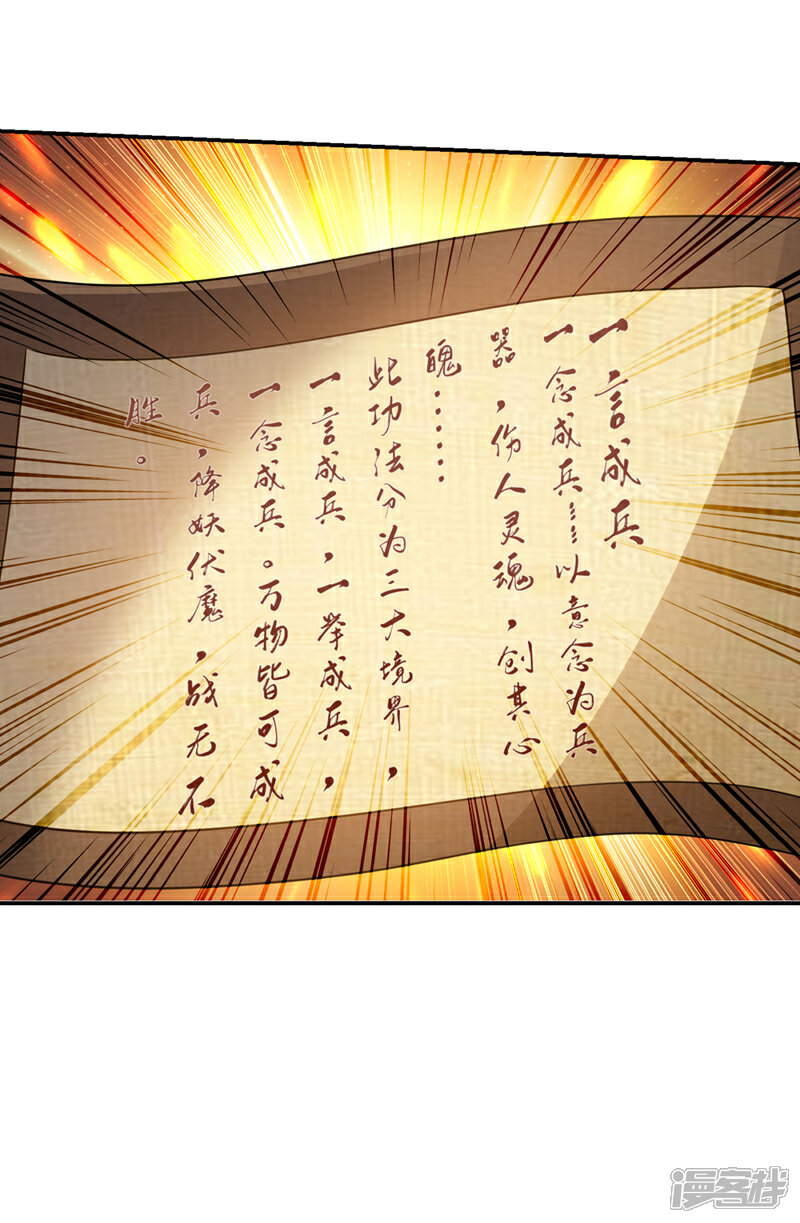 一言成兵
一念成兵……以意念为兵
器，伤人灵魂，创其心
魄……
此功法分为三大境界，
一言成兵，一举成兵，
一念成兵。万物皆可成
兵，降妖伏魔，战无不
胜。
漫客栈